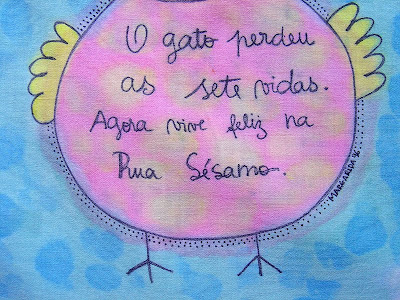 O gato perdeu
as sete vidas.
Agora vive feliz na
Rua Sésamo.
MARGARIDA